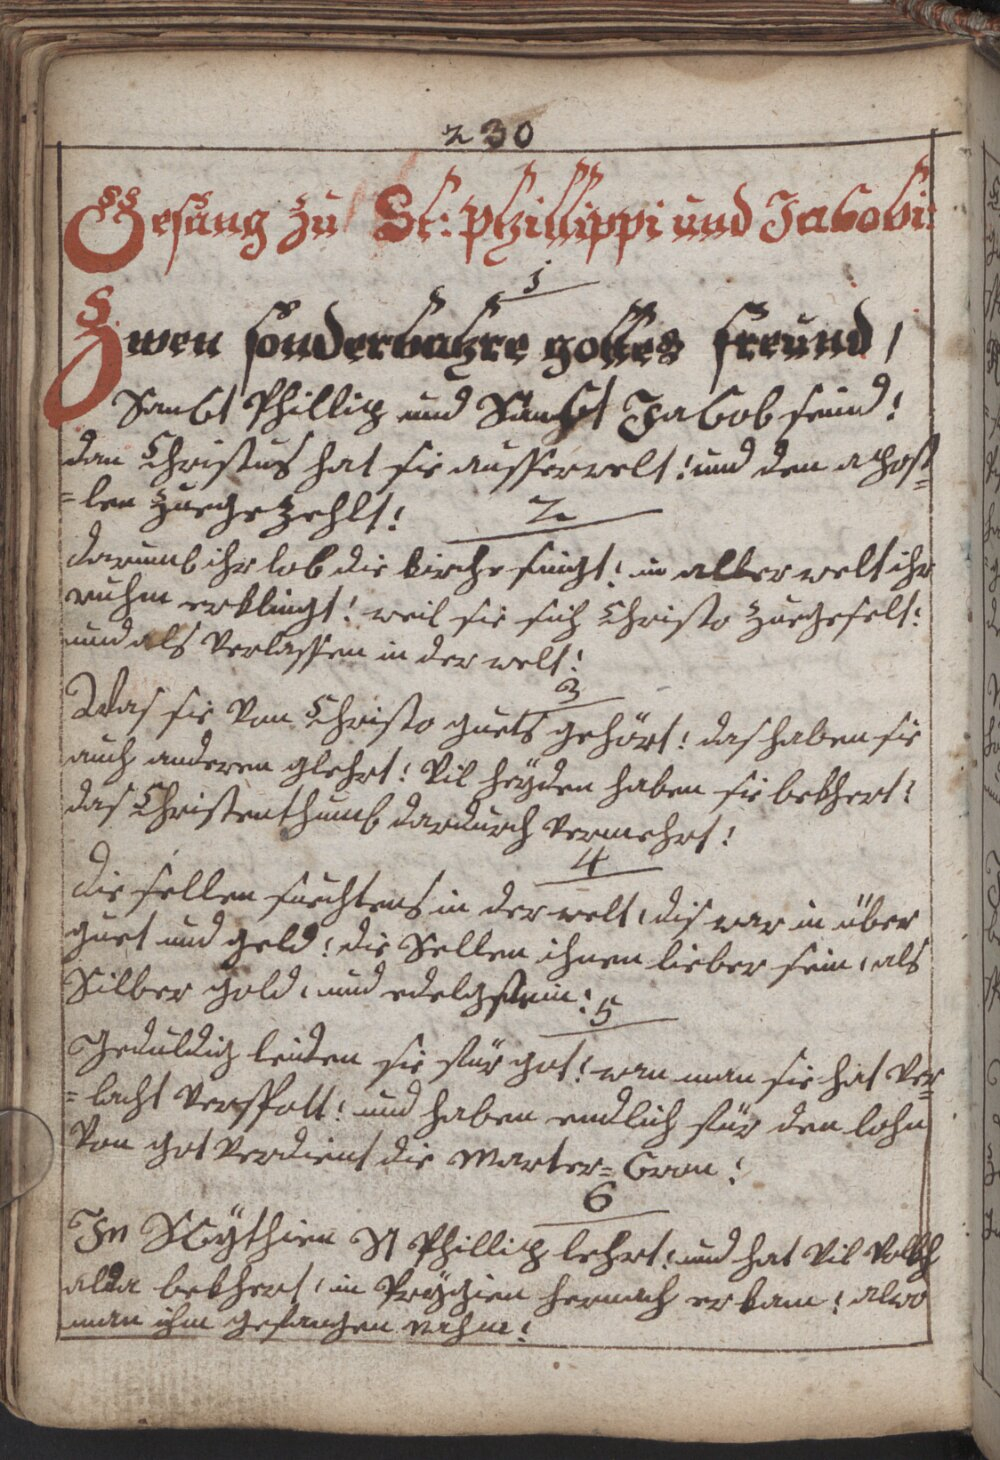 230
Gesang zu St: Phillippi und Jacobi:
1
Zwen sonderbahre gottes freund /
Sanct Phillip und Sanct Jacob seind!
dan Christus hat sie ausserwelt! und den apost
=len zuegezehlt!
2
darumb ihr lob die kirche singt! in aller welt ihr
ruhm erklingt! weil sie sich Christo zuegeselt!
und als verlassen in der welt!
3
Was sie von Christo guets gehört! das haben sie
auch anderen glehrt! vil heyden haben sie bekhert!
das Christenthumb dardurch vermehrt!
4
die sellen suechtens in der welt, dis war in über
guet und geld! die Sellen ihnen lieber sein, als
Silber gold, und edelgstein!
5
Geduldig leiden sie für got! wan man sie hat ver
=lacht verspott! und haben endlich für den lohn
von got verdient die marter=Cron!
6
In Scythien St Phillip lehrt! und hat vil volckh
alda bekhert, in Prygien hernach er kam! alwo
man ihm gefangen nahm!